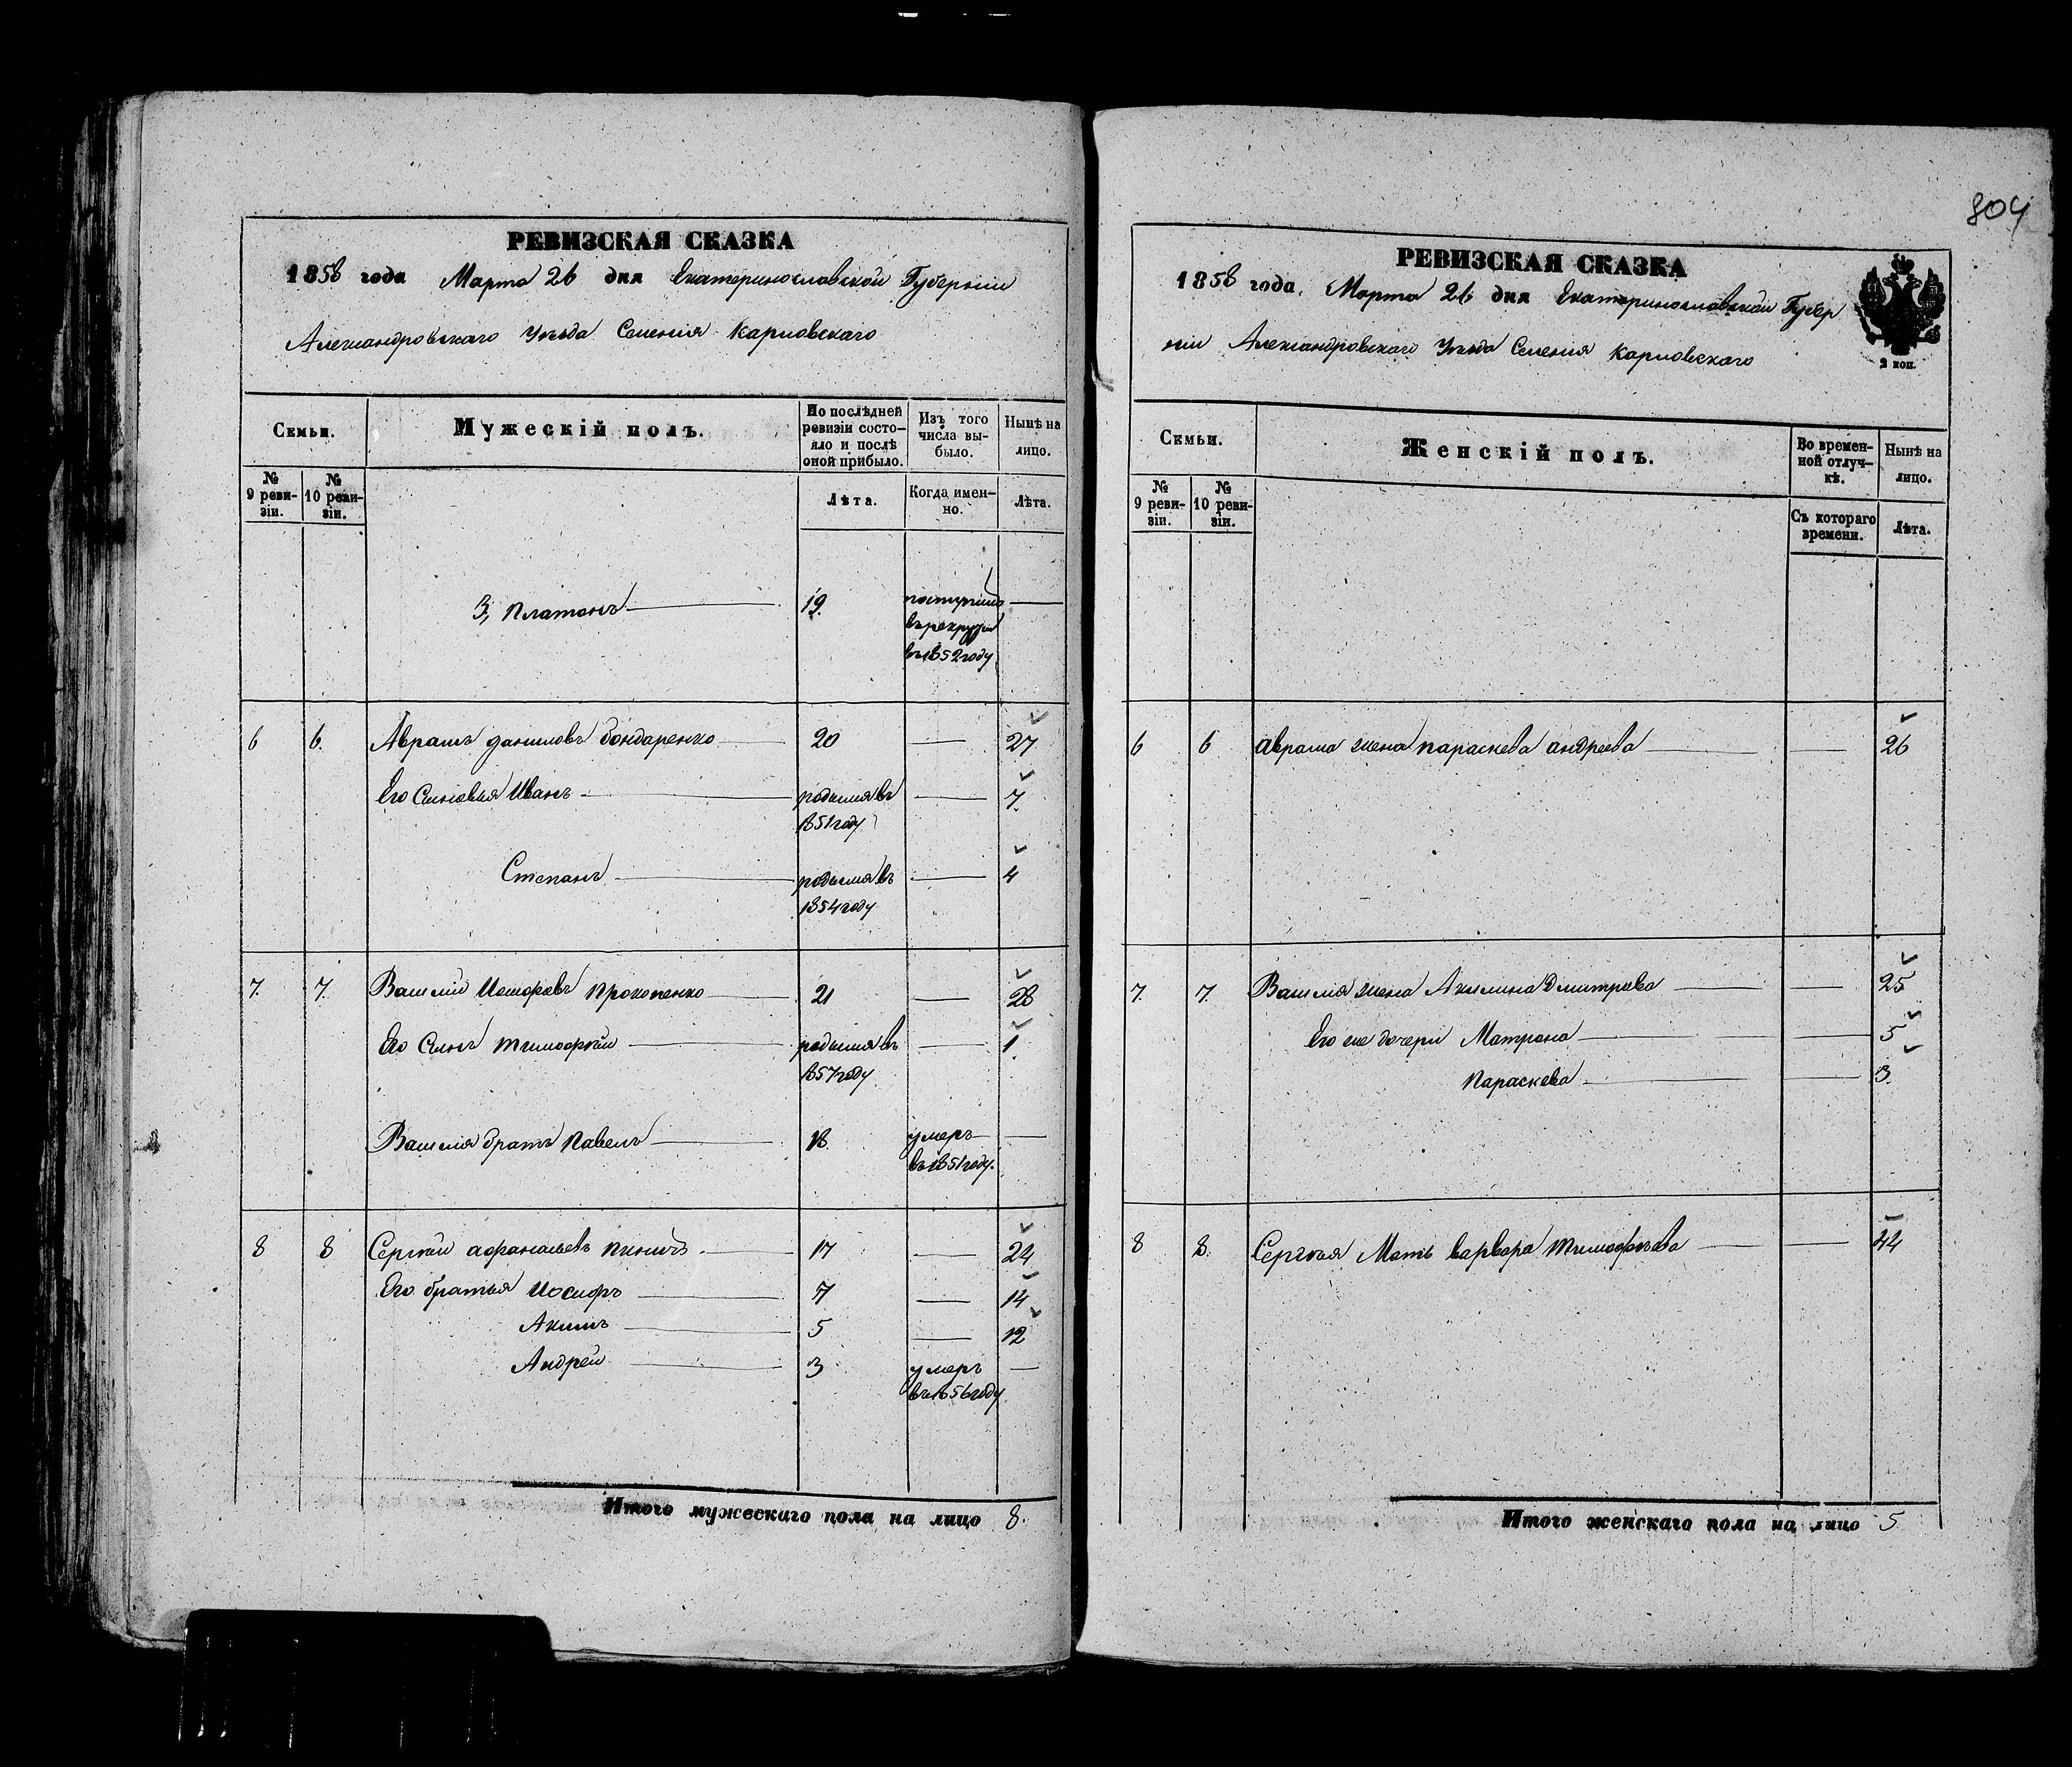 804
РЕВИЗСКАЯ СКАЗКА
1858 года Марта 26 дня Екатеринославской Губернии
Александровского Уезда Селения Карловского
Семьи.
Мужескій полъ.
По послѣдней ревизіи состо-
яло и послѣ
оной прибыло.
Изъ того
числа вы-
было.
Нынѣ на
лицо.
№
9 реви-
зіи.
№
10 реви-
зіи.
Лѣта.
Когда имен-
но.
Лѣта.
3, Платонъ 19. поступилъ
въ рекруты
въ 1852 году
6 6. Аврамъ Даниловъ Бондаренко 20 27
Его Сыновья Иванъ родился въ 7.
1851 году
Степанъ родился въ 4
1854 году
7. 7. Василий Прокопенко 21 28
Его Сынъ Тимофѣй родился въ 1.
1857 году
Василия братъ Павелъ 18. умеръ
въ 1851 году.
8 8 Сергѣй Афанасьевъ 17 24
Его братья Иосифъ 7 14
Акимъ 5 12
Андрей 3 умеръ
въ 1856 году
Итого мужескаго пола на лицо 8.
РЕВИЗСКАЯ СКАЗКА
1858 года. Марта 26 дня Екатеринославской Губер
нии Александровского Уезда Селения Карловского
2 коп.
Семьи.
Женскій полъ.
Во времен-
ной отлуч-
кѣ.
Нынѣ на
лицо.
№
9 реви-
зіи.
№
10 реви-
зіи.
Съ котораго
времени.
Лѣта.
6 6 Аврама жена Параскева Андреева 26
7. 7. Василия жена Акилина Дмитрева 25
Его же дочери Матрона 5
Параскева 3.
8 8. Сергѣя Мать Варвара Тимофѣева 44
Итого женскаго пола на лицо 5